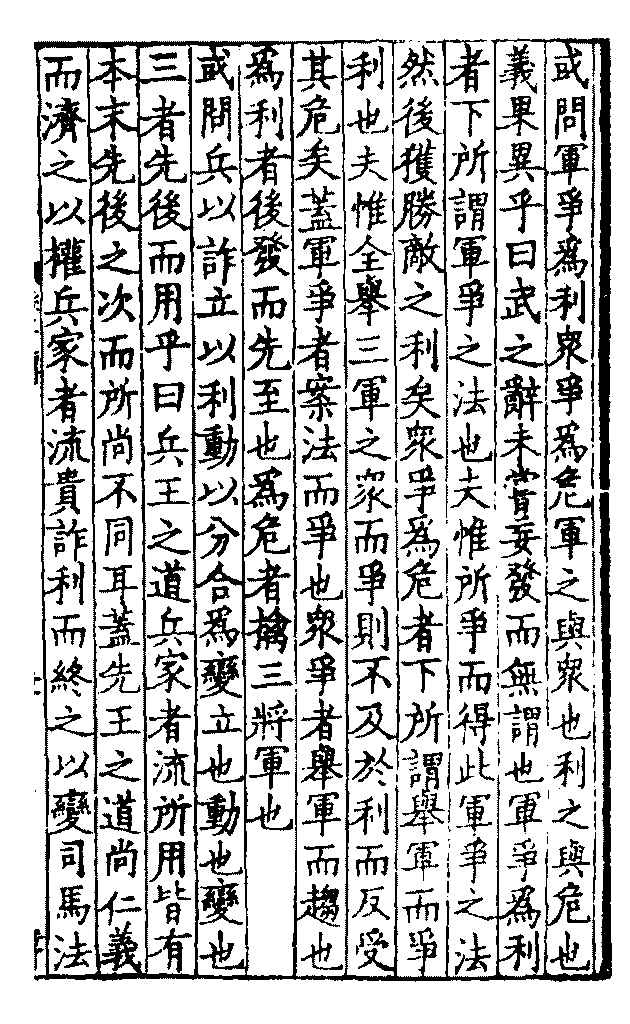 或問軍爭爲利衆爭爲危軍之與衆也利之與危也
義果異乎曰武之辭未嘗妄發而無謂也軍爭爲利
者下所謂軍爭之法也夫惟所爭而得此軍爭之法
然後獲勝敵之利矣衆爭爲危者下所謂舉軍而爭
利也夫惟全舉三軍之衆而爭則不及於利而反受
其危矣蓋軍爭者案法而爭也衆爭者舉軍而趨也
爲利者後發而先至也爲危者擒三將軍也
或問兵以詐立以利動以分合爲變立也動也變也
三者先後而用乎曰兵王之道兵家者流所用皆有
本末先後之次而所尚不同耳蓋先王之道尚仁義
而濟之以權兵家者流貴詐利而終之以變司馬法